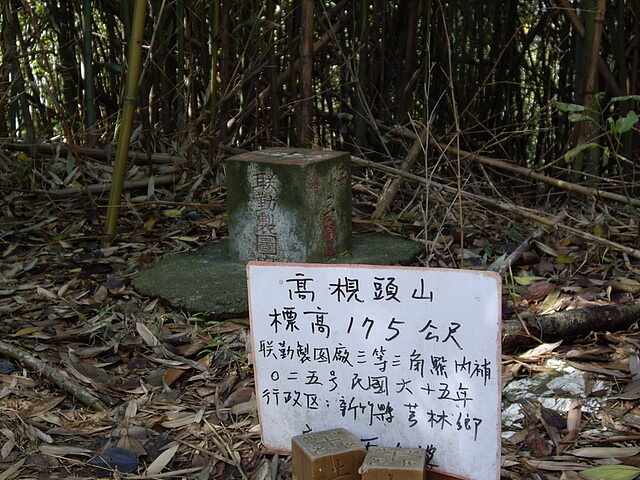 聯勤製圖
高梘頭山
標高175公尺
联勤製圖廠三等三角點內補
0二五号民國六十五年
行政区：新竹縣芎林鄉